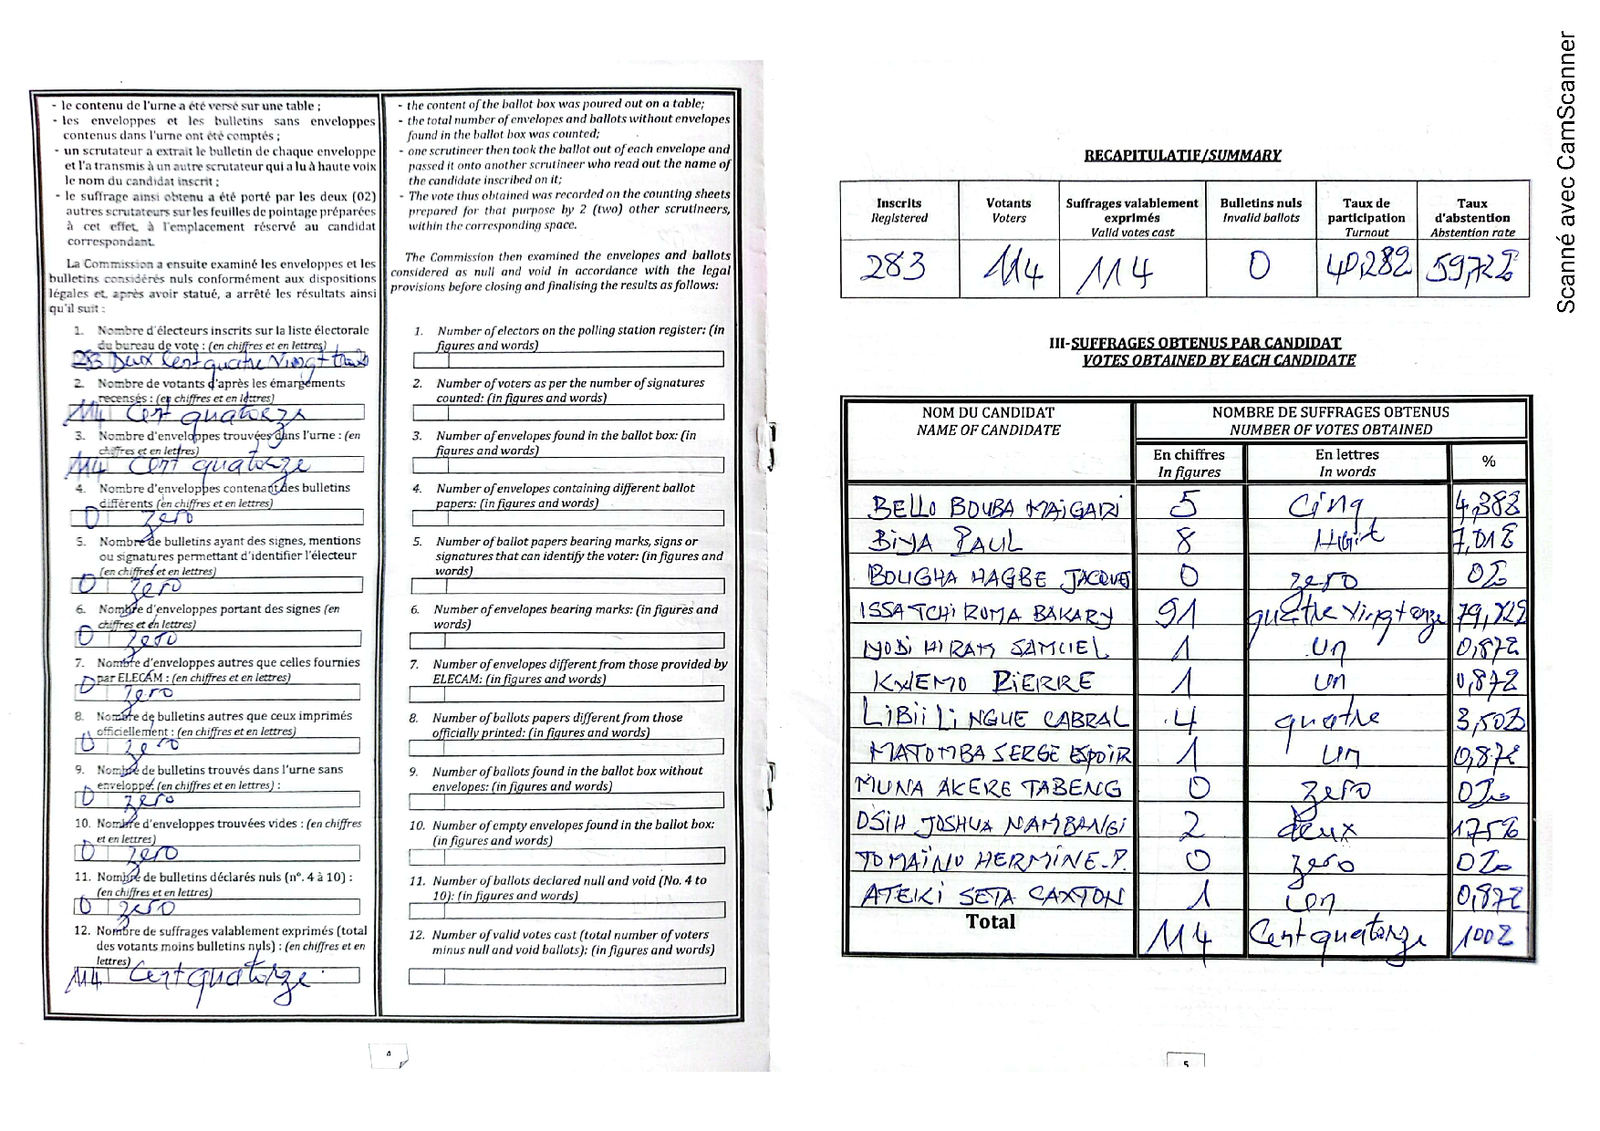 - le contenu de l'urne a été versé sur une table ;
- les enveloppes et les bulletins sans enveloppes
contenus dans l'urne ont été comptés ;
- un scrutateur a extrait le bulletin de chaque enveloppe
et l'a transmis à un autre scrutateur qui a lu à haute voix
le nom du candidat inscrit ;
- le suffrage ainsi obtenu a été porté par les deux (02)
autres scrutateurs sur les feuilles de pointage préparées
à cet effet, à l'emplacement réservé au candidat
correspondant.
La Commission a ensuite examiné les enveloppes et les
bulletins considérés nuls conformément aux dispositions
légales et, après avoir statué, a arrêté les résultats ainsi
qu'il suit :
1. Nombre d'électeurs inscrits sur la liste électorale
du bureau de vote : (en chiffres et en lettres)
283 Deux Cent quatre Vingt trois
2. Nombre de votants d'après les émargements
recensés : (en chiffres et en lettres)
114 Cent quatorze
3. Nombre d'enveloppes trouvées dans l'urne : (en
chiffres et en lettres)
114 Cent quatorze
4. Nombre d'enveloppes contenant des bulletins
différents (en chiffres et en lettres)
0 zero
5. Nombre de bulletins ayant des signes, mentions
ou signatures permettant d'identifier l'électeur
(en chiffres et en lettres)
0 zero
6. Nombre d'enveloppes portant des signes (en
chiffres et en lettres)
0 zero
7. Nombre d'enveloppes autres que celles fournies
par ELECAM : (en chiffres et en lettres)
0 zero
8. Nombre de bulletins autres que ceux imprimés
officiellement : (en chiffres et en lettres)
0 zero
9. Nombre de bulletins trouvés dans l'urne sans
enveloppe: (en chiffres et en lettres) :
0 zero
10. Nombre d'enveloppes trouvées vides : (en chiffres
et en lettres)
0 zero
11. Nombre de bulletins déclarés nuls (n°. 4 à 10) :
(en chiffres et en lettres)
0 zero
12. Nombre de suffrages valablement exprimés (total
des votants moins bulletins nuls) : (en chiffres et en
lettres)
114 Cent quatorze
- the content of the ballot box was poured out on a table;
- the total number of envelopes and ballots without envelopes
found in the ballot box was counted;
- one scrutineer then took the ballot out of each envelope and
passed it onto another scrutineer who read out the name of
the candidate inscribed on it;
- The vote thus obtained was recorded on the counting sheets
prepared for that purpose by 2 (two) other scrutineers,
within the corresponding space.
The Commission then examined the envelopes and ballots
considered as null and void in accordance with the legal
provisions before closing and finalising the results as follows:
1. Number of electors on the polling station register: (in
figures and words)
2. Number of voters as per the number of signatures
counted: (in figures and words)
3. Number of envelopes found in the ballot box: (in
figures and words)
4. Number of envelopes containing different ballot
papers: (in figures and words)
5. Number of ballot papers bearing marks, signs or
signatures that can identify the voter: (in figures and
words)
6. Number of envelopes bearing marks: (in figures and
words)
7. Number of envelopes different from those provided by
ELECAM: (in figures and words)
8. Number of ballots papers different from those
officially printed: (in figures and words)
9. Number of ballots found in the ballot box without
envelopes: (in figures and words)
10. Number of empty envelopes found in the ballot box:
(in figures and words)
11. Number of ballots declared null and void (No. 4 to
10): (in figures and words)
12. Number of valid votes cast (total number of voters
minus null and void ballots): (in figures and words)
4
RECAPITULATIF/SUMMARY
Inscrits Votants Suffrages valablement Bulletins nuls Taux de Taux
Registered Voters exprimés Invalid ballots participation d'abstention
Valid votes cast Turnout Abstention rate
283 114 114 0 40,28% 59,72%
III-SUFFRAGES OBTENUS PAR CANDIDAT
VOTES OBTAINED BY EACH CANDIDATE
NOM DU CANDIDAT NOMBRE DE SUFFRAGES OBTENUS
NAME OF CANDIDATE NUMBER OF VOTES OBTAINED
En chiffres En lettres %
In figures In words
BELLO BOUBA MAIGARI 5 Cinq 4,38%
BIYA PAUL 8 Huit 7,01%
BOUGHA HAGBE JACQUES 0 zero 0%
ISSA TCHIROMA BAKARY 91 quatre Vingt onze 79,82%
IYODI HIRAM SAMUEL 1 un 0,87%
KWEMO PIERRE 1 un 0,87%
LIBII LI NGUE CABRAL 4 quatre 3,50%
MATOMBA SERGE ESPOIR 1 un 0,87%
MUNA AKERE TABENG 0 zero 0%
OSIH JOSHUA NAMBANGI 2 deux 1,75%
TOMAINO HERMINE.P. 0 zero 0%
ATEKI SETA CAXTON 1 un 0,87%
Total 114 Cent quatorze 100%
5
Scanné avec CamScanner